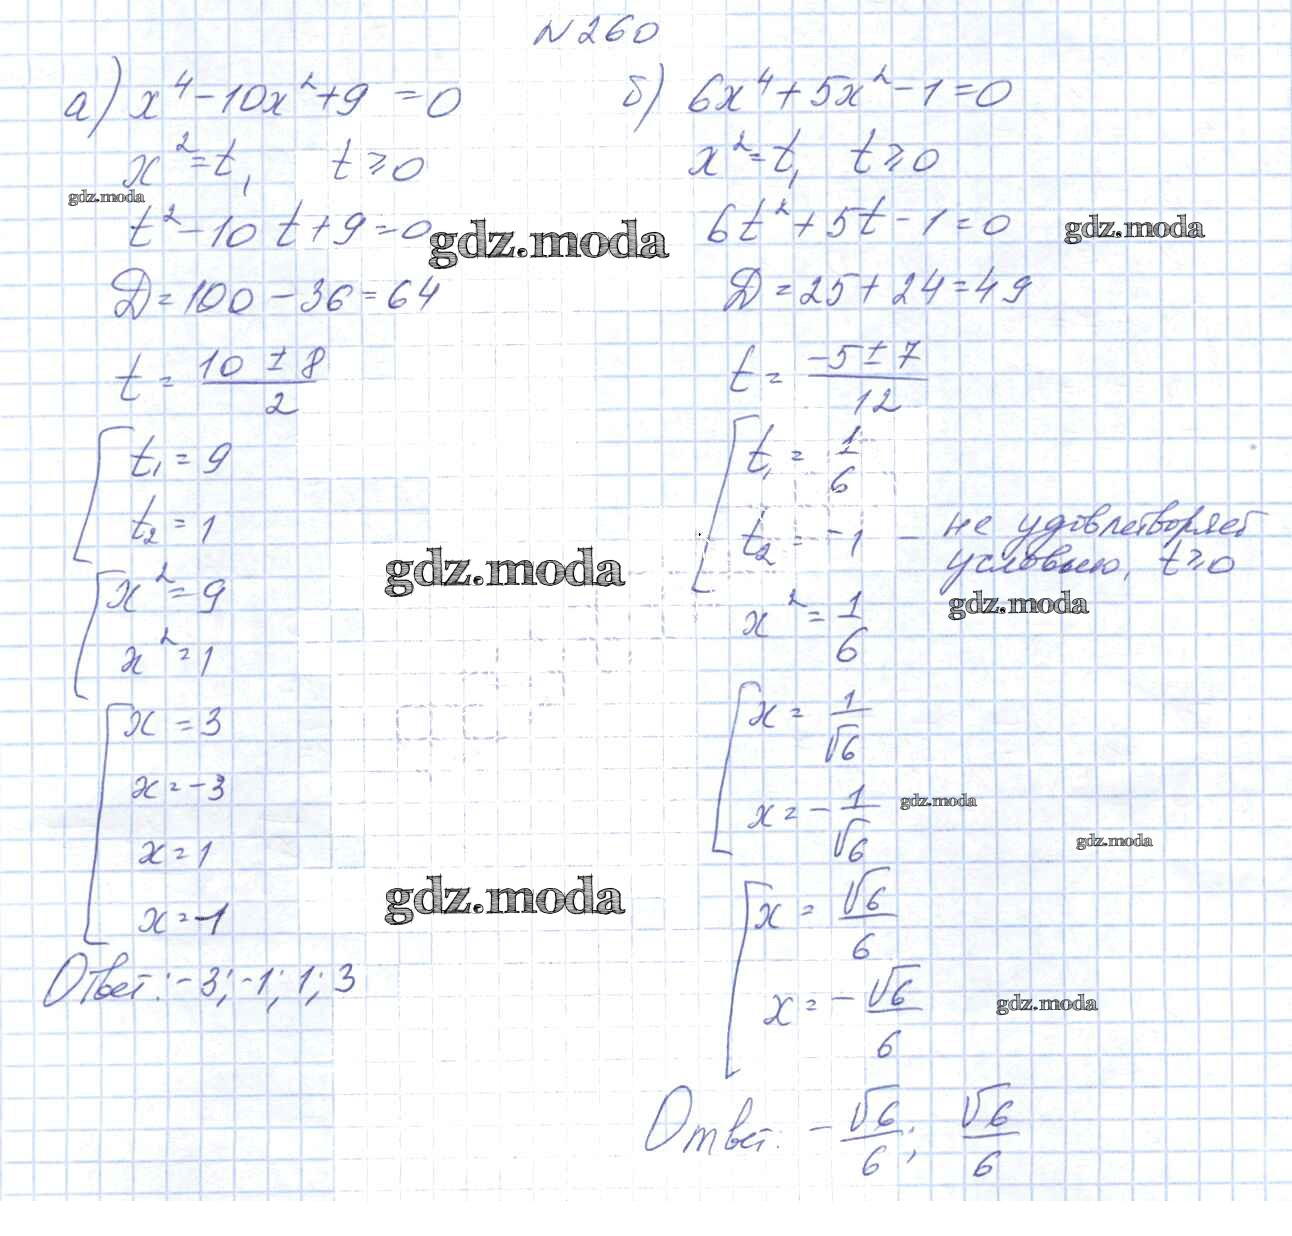 N260
а) x⁴ - 10x² + 9 = 0
x² = t, t ⩾ 0
gdz.moda
t² - 10t + 9 = 0
gdz.moda
D = 100 - 36 = 64
t = (10 ± 8)/2
t₁ = 9
t₂ = 1
gdz.moda
x² = 9
x² = 1
x = 3
x = -3
x = 1
gdz.moda
x = -1
Ответ: -3; -1; 1; 3
б) 6x⁴ + 5x² - 1 = 0
x² = t, t ⩾ 0
6t² + 5t - 1 = 0
gdz.moda
D = 25 + 24 = 49
t = (-5 ± 7)/12
t₁ = 1/6
t₂ = -1 - не удовлетворяет
условию, t ⩾ 0
gdz.moda
x² = 1/6
x = 1/√6
x = -1/√6
gdz.moda
gdz.moda
x = √6/6
x = -√6/6
gdz.moda
Ответ: -√6/6; √6/6